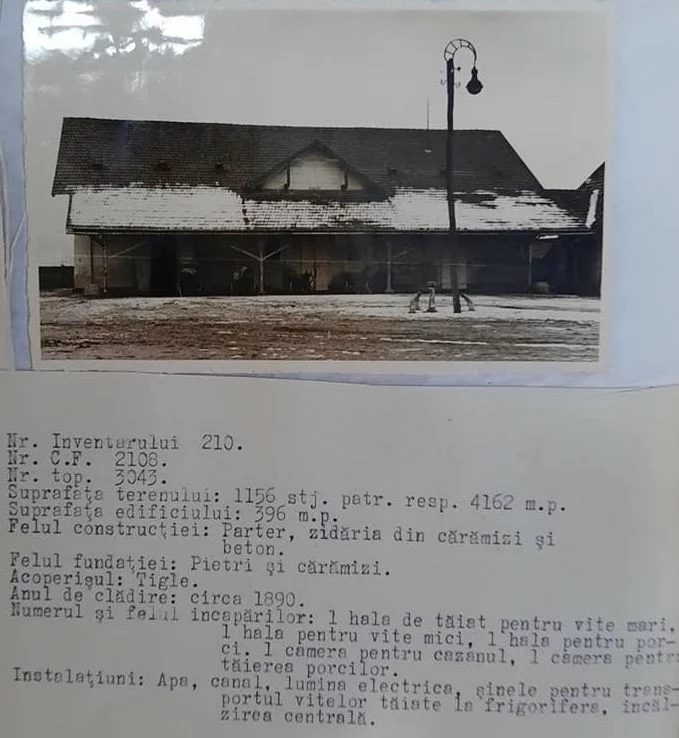 Nr. Inventarului 210.
Nr. C.F. 2108.
Nr. top. 3043.
Suprafaţa terenului: 1156 stj. patr. resp. 4162 m.p.
Suprafaţa edificiului: 396 m.p.
Felul construcţiei: Parter, zidăria din cărămizi şi
beton.
Felul fundaţiei: Pietri şi cărămizi.
Acoperişul: Tigle.
Anul de clădire: circa 1890.
Numerul şi felul incapărilor: 1 hala de tăiat pentru vite mari,
1 hala pentru vite mici, 1 hala pentru por-
ci. 1 camera pentru cazanul, 1 camera pentru
tăierea porcilor.
Instalaţiuni: Apa, canal, lumina electrica, şinele pentru trans-
portul vitelor tăiate la frigorifera, incăl-
zirea centrală.